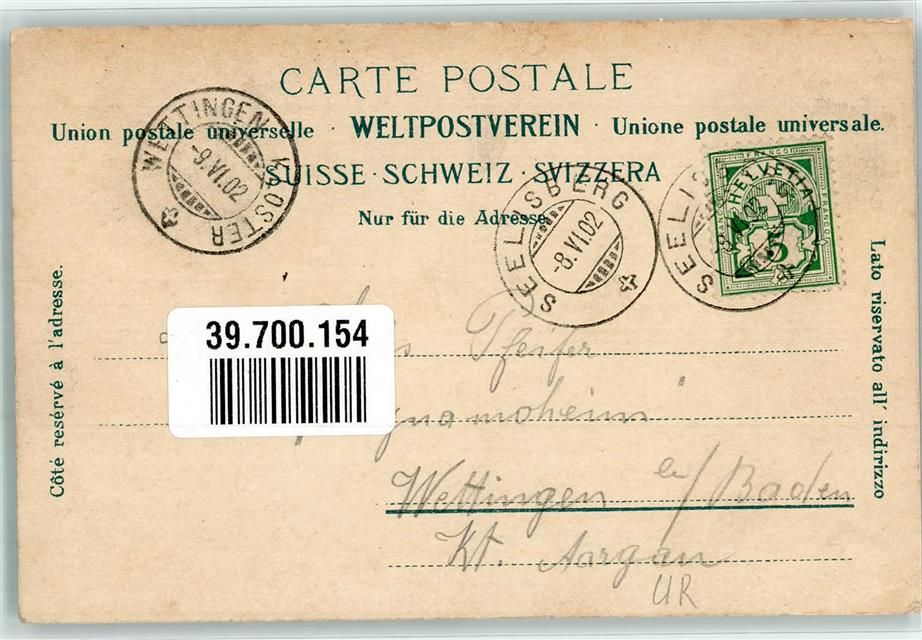 CARTE POSTALE
Union postale universelle · WELTPOSTVEREIN · Unione postale universale.
SUISSE · SCHWEIZ · SVIZZERA
Nur für die Adresse.
WETTINGEN KLOSTER
-9.VI.02
SEELISBERG
-8.VI.02
SEELIS
FRANCO
HELVETIA
5
Côté resérvé à l'adresse.
Lato riservato all' indirizzo
39.700.154
Pfeifer
Wettingen b/Baden
Kt. Aargau
UR